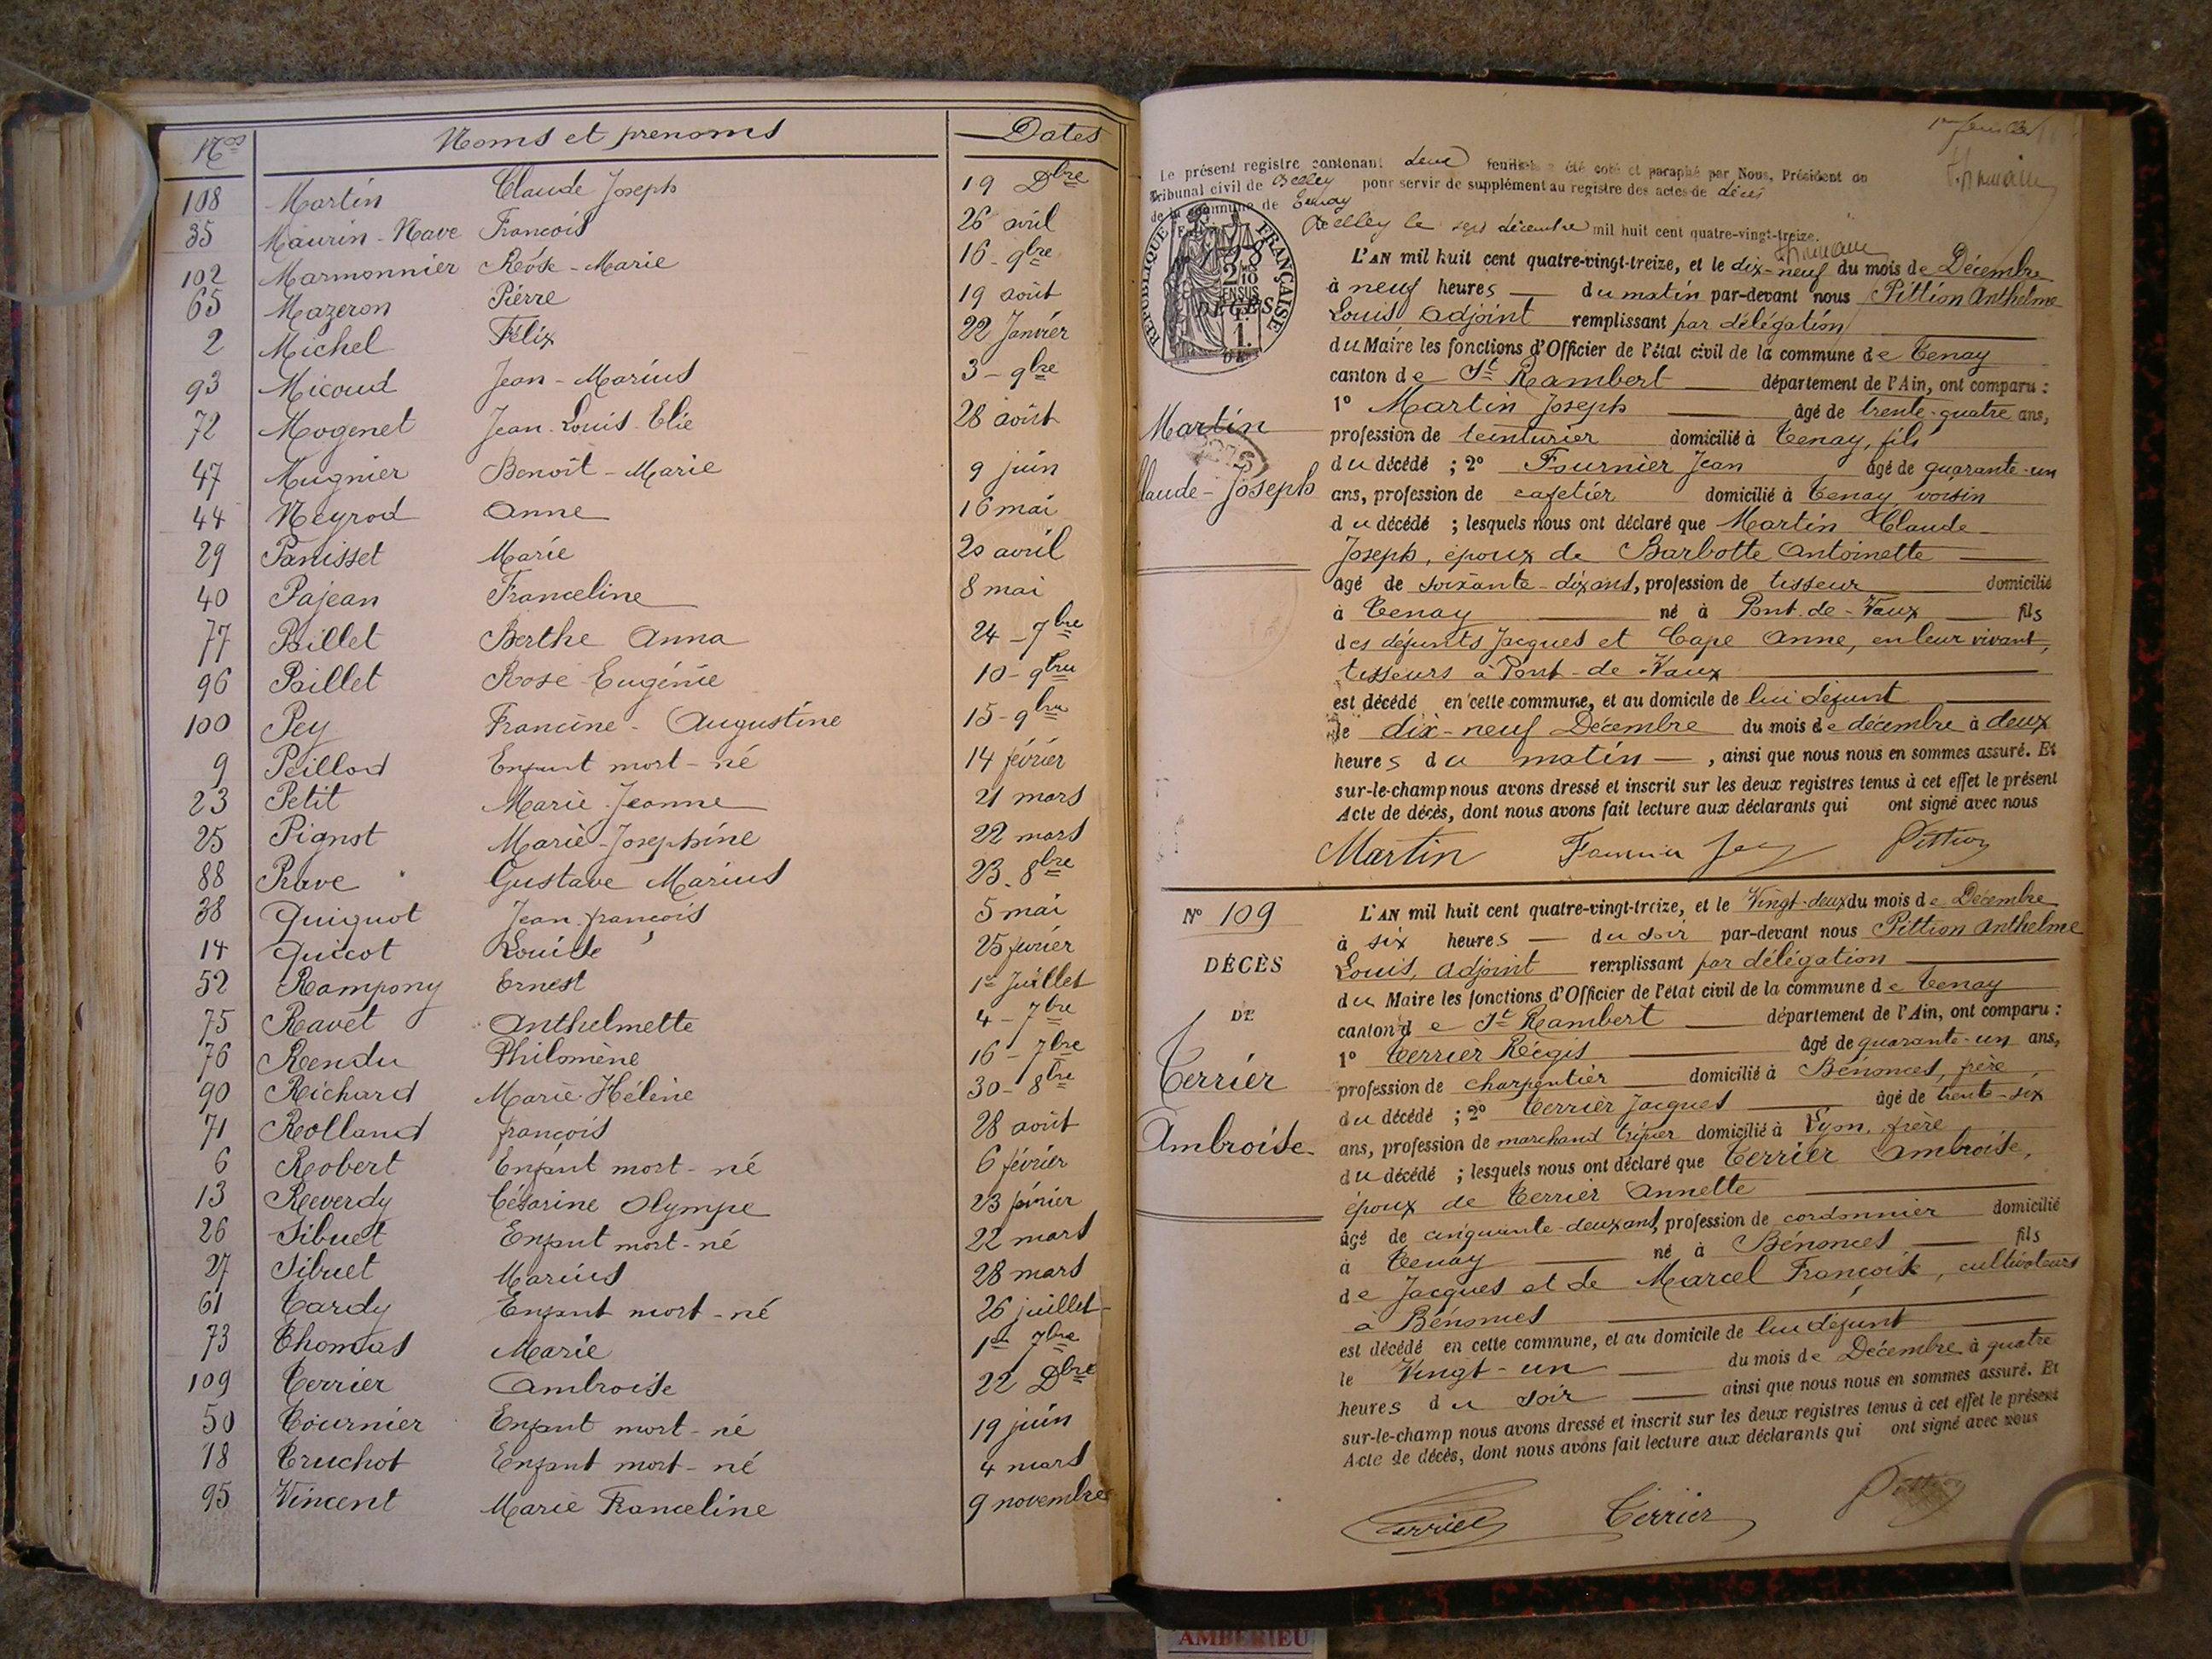 Nos Noms et prenoms Dates
108 Martin Claude Joseph 19 Dbre
35 Maurin-Nave François 26 avril
102 Marmonnier Rose-Marie 16-9bre
65 Mazeron Pierre 19 août
2 Michel Félix 22 Janvier
93 Micoud Jean-Marius 3-9bre
72 Mogenet Jean-Louis-Elie 28 août
47 Mugnier Benoît-Marie 9 juin
44 Neyrod Anne 16 mai
29 Panisset Marie 20 avril
40 Pajean Franceline 8 mai
77 Paillet Berthe Anna 24-7bre
96 Paillet Rose-Eugénie 10-9bre
100 Pey Francine-Augustine 15-9bre
9 Peillod Enfant mort-né 14 février
23 Petit Marie-Jeanne 21 mars
25 Pignot Marie-Josephine 22 mars
88 Prave Gustave Marius 23-8bre
38 Quiquot Jean françois 5 mai
14 Quicot Louise 25 février
52 Rampony Ernest 1er Juillet
75 Ravet Anthelmette 4-7bre
76 Rendu Philomène 16-7bre
90 Richard Marie-Hélène 30-8bre
71 Rolland françois 28 août
6 Robert Enfant mort-né 6 février
13 Reverdy Césarine Olympe 23 février
26 Sibuet Enfant mort-né 22 mars
27 Sibuet Marius 28 mars
61 Tardy Enfant mort-né 26 juillet
73 Thomas Marie 1er 7bre
109 Terrier Ambroise 22 Dbre
50 Tournier Enfant mort-né 19 juin
18 Truchot Enfant mort-né 4 mars
95 Vincent Marie Franceline 9 novembre
Le présent registre contenant deux feuillets a été coté et paraphé par Nous, Président du
Tribunal civil de Belley pour servir de supplément au registre des actes de décès
de la commune de Tenay
Belley le sept décembre mil huit cent quatre-vingt-treize.
RÉPUBLIQUE FRANÇAISE
DÉCÈS
Martin
Claude-Joseph
L'AN mil huit cent quatre-vingt-treize, et le dix-neuf du mois de Décembre
à neuf heures du matin par-devant nous Pittion Anthelme
Louis Adjoint remplissant par délégation
du Maire les fonctions d'Officier de l'état civil de la commune de Tenay
canton de St Rambert département de l'Ain, ont comparu :
1° Martin Joseph âgé de trente-quatre ans,
profession de teinturier domicilié à Tenay, fils
du décédé ; 2° Fournier Jean âgé de quarante-un
ans, profession de cafetier domicilié à Tenay voisin
du décédé ; lesquels nous ont déclaré que Martin Claude-
Joseph, époux de Barbotte Antoinette
âgé de soixante-dix ans, profession de tisseur domicilié
à Tenay né à Pont-de-Vaux fils
des défunts Jacques et Cape Anne, en leur vivant,
tisseurs à Pont-de-Vaux
est décédé en cette commune, et au domicile de lui défunt
le dix-neuf Décembre du mois de décembre à deux
heures du matin, ainsi que nous nous en sommes assuré. Et
sur-le-champ nous avons dressé et inscrit sur les deux registres tenus à cet effet le présent
Acte de décès, dont nous avons fait lecture aux déclarants qui ont signé avec nous
Martin Fournier Jean Pittion
N° 109
DÉCÈS
DE
Terrier
Ambroise
L'AN mil huit cent quatre-vingt-treize, et le Vingt-deux du mois de Décembre
à six heures du soir par-devant nous Pittion Anthelme
Louis, Adjoint remplissant par délégation
du Maire les fonctions d'Officier de l'état civil de la commune de Tenay
canton de St Rambert département de l'Ain, ont comparu :
1° Terrier Régis âgé de quarante-un ans,
profession de charpentier domicilié à Bénonces, frère
du décédé ; 2° Terrier Jacques âgé de trente-six
ans, profession de marchand tripier domicilié à Lyon, frère
du décédé ; lesquels nous ont déclaré que Terrier Ambroise,
époux de Terrier Annette
âgé de cinquante-deux ans, profession de cordonnier domicilié
à Tenay né à Bénonces fils
de Jacques et de Marcel Françoise, cultivateurs
à Bénonces
est décédé en cette commune, et au domicile de lui défunt
le Vingt-un du mois de Décembre à quatre
heures du soir ainsi que nous nous en sommes assuré. Et
sur-le-champ nous avons dressé et inscrit sur les deux registres tenus à cet effet le présent
Acte de décès, dont nous avons fait lecture aux déclarants qui ont signé avec nous
Terrier Terrier Pittion
AMBERIEU